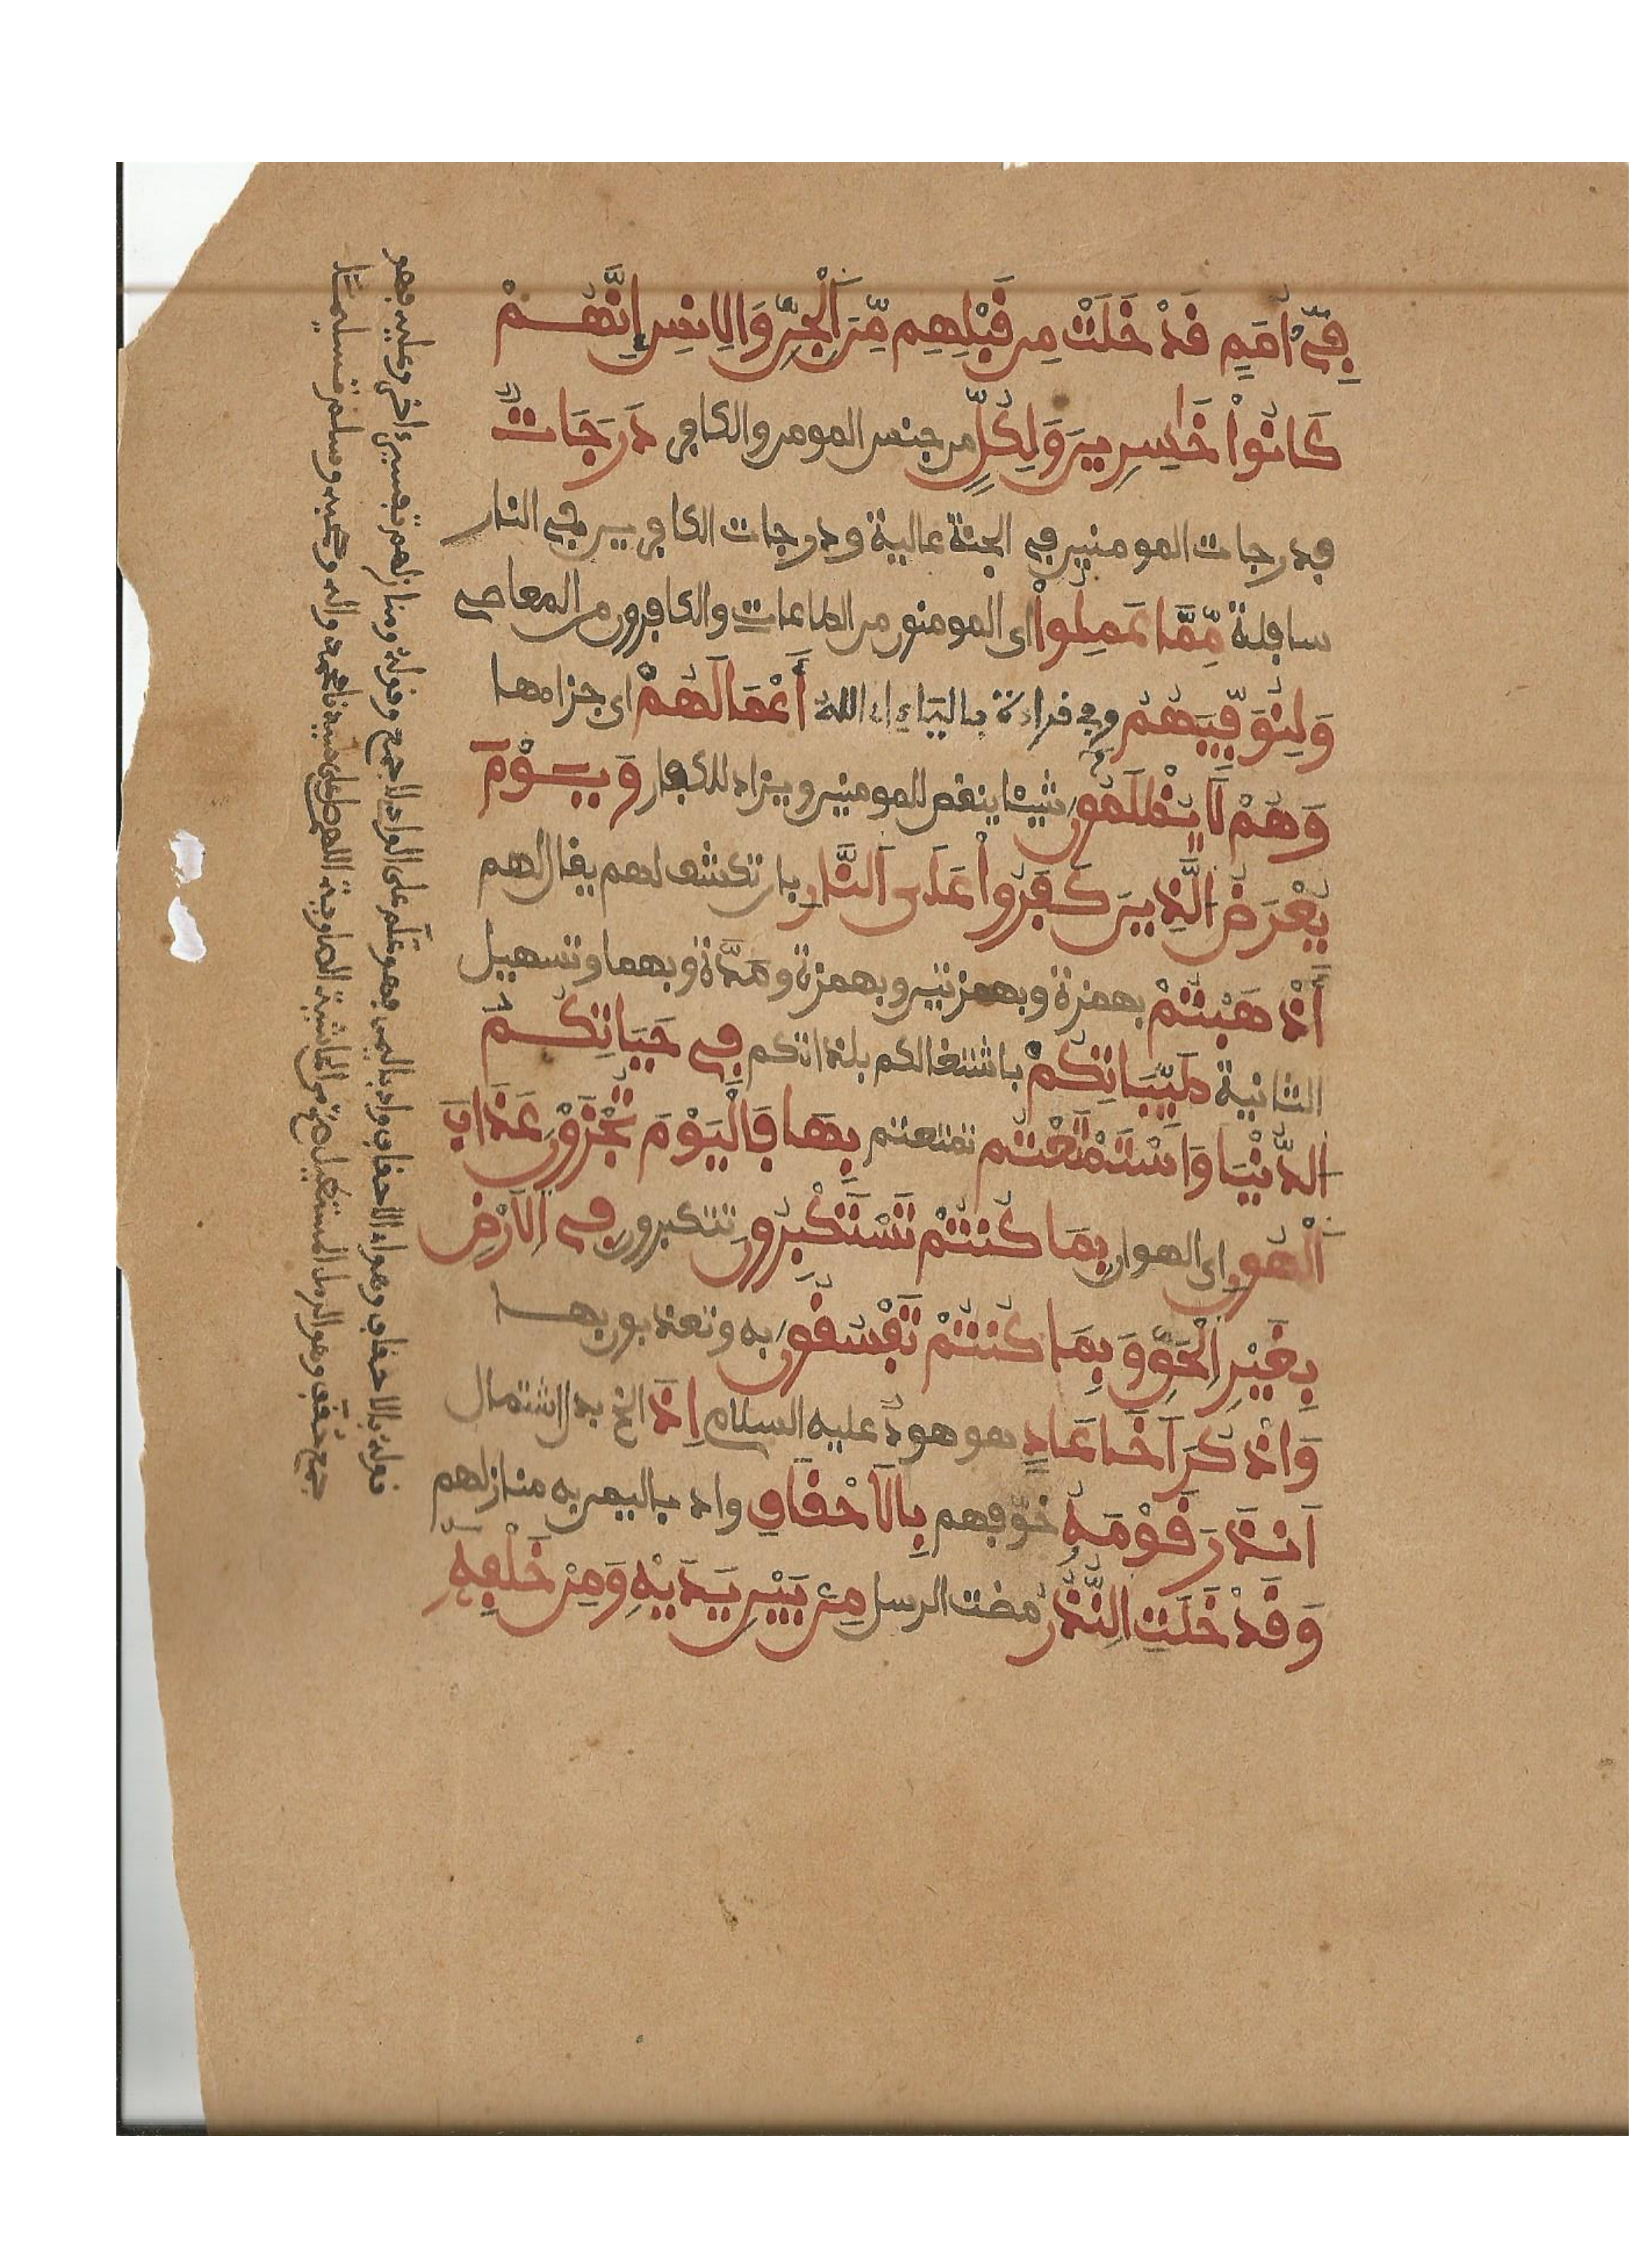 فِي أُمَمٍ قَدْ خَلَتْ مِن قَبْلِهِم مِّنَ ٱلْجِنِّ وَالِانسِ إِنَّهُمْ
كَانُواْ خَٰسِرِينَ وَلِكُلٍّ من جنس المومن والكافر دَرَجَاتٌ
فدرجات المومنين في الجنة عالية ودرجات الكافرين في النار
سافلة مِّمَّا عَمِلُواْ اي المومنون من الطاعات والكافرون من المعاصي
وَلِنُوَفِّيَهُمْ وفي قراءة بالياء اي الله أَعْمَالَهُمْ اي جزاءها
وَهُمْ لَا يُظْلَمُونَ شيئا ينقص للمومنين ويزاد للكفار وَيَوْمَ
يُعْرَضُ ٱلَّذِينَ كَفَرُواْ عَلَى ٱلنَّارِ بان تكشف لهم يقال لهم
أَذْهَبْتُمْ بهمزة وبهمزتين وبهمزة ومَدَّة وبهما وتسهيل
الثانية طَيِّبَاتِكُمْ باشتغالكم بلذاتكم فِي حَيَاتِكُمُ
الدُّنْيَا وَاسْتَمْتَعْتُم تمتعتم بِهَا فَالْيَوْمَ تُجْزَوْنَ عَذَابَ
ٱلْهُونِ اي الهوان بِمَا كُنتُمْ تَسْتَكْبِرُونَ تتكبرون فِي ٱلَارْضِ
بِغَيْرِ ٱلْحَقِّ وَبِمَا كُنتُمْ تَفْسُقُونَ به وتعذبون بها
وَاذْكُرَ اَخَا عَادٍ هو هود عليه السلام اِذَ الخ بدل اشتمال
اَنذَرَ قَوْمَهُ خوّفهم بِالَاحْقَافِ واد باليمن به منازلهم
وَقَدْ خَلَتِ النُّذُرُ مضت الرسل مِنۢ بَيْنِ يَدَيْهِ وَمِنْ خَلْفِهِ
قوله بالاحقاف وهو اد الاحقاف واد باليمن فهو علم على الواد لا جمع وقوله ومنازلهم تفسير اخر وعليه فهو
جمع حقف وهو الرمل المستطيل من الحاشية الصاوية اللهم صل على سيدنا محمد واله وصحبه وسلم تسليما